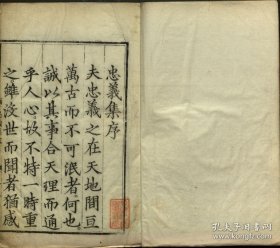 忠義集序
夫忠義之在天地間亘
萬古而不可泯者何也
誠以其事合天理而通
乎人心故不特一時重
之雖沒世而聞者猶感
孔夫子旧书网